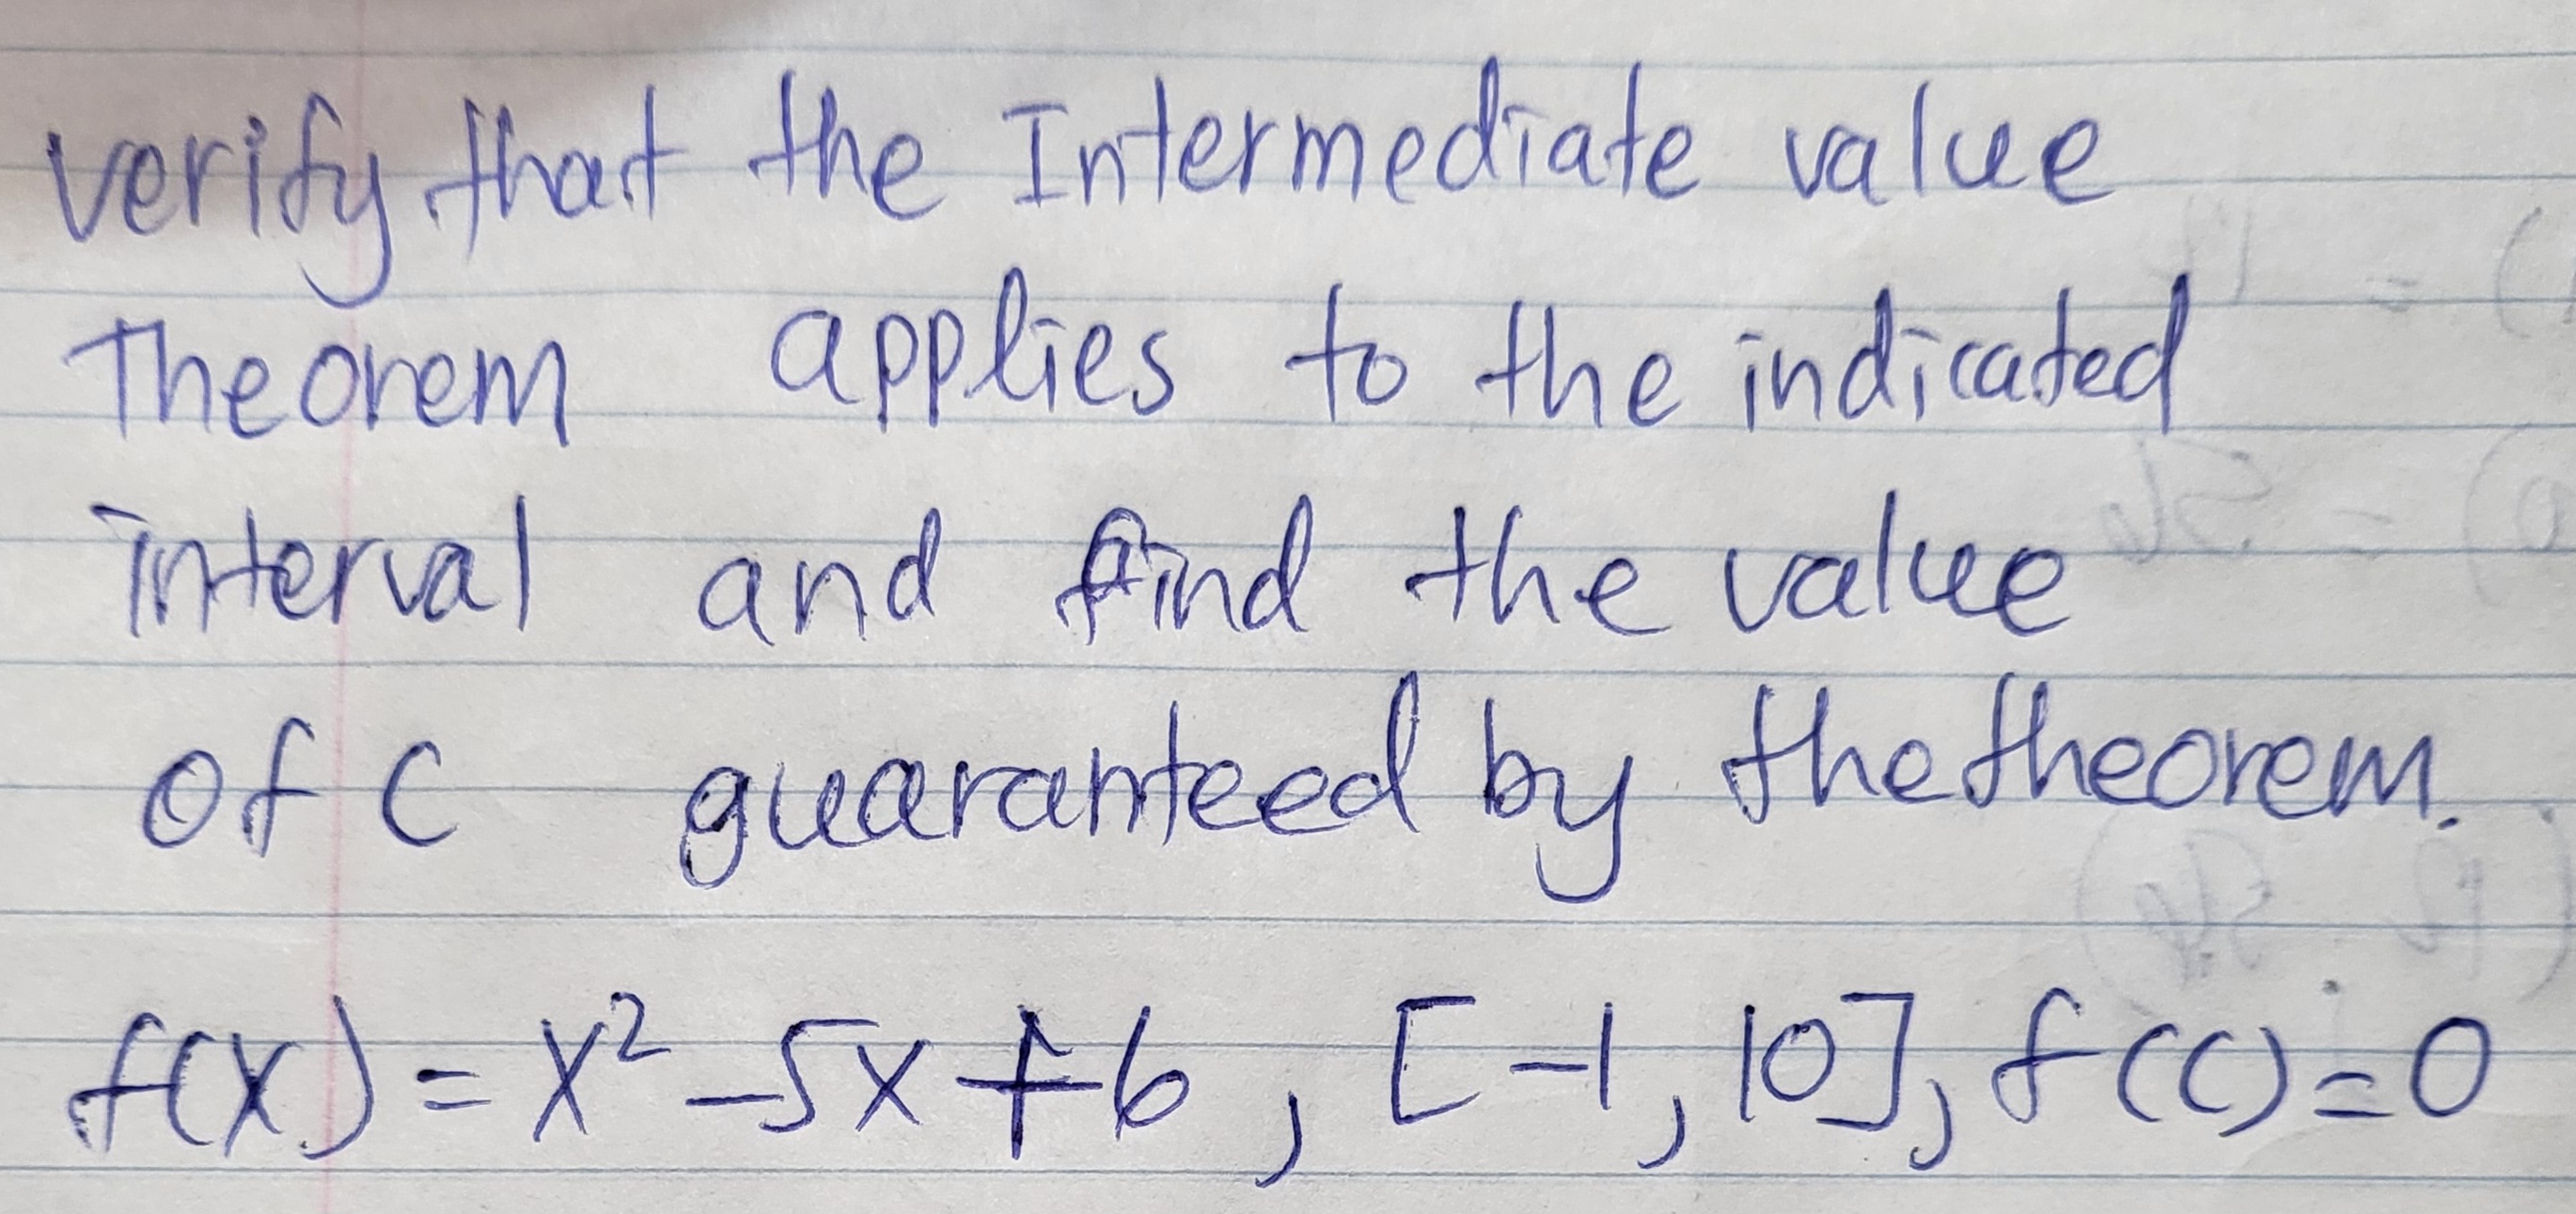 verify that the Intermediate value
Theorem applies to the indicated
interval and find the value
of C guaranteed by the theorem.
f(x) = x² -5x +6 , [-1, 10], f(c)=0